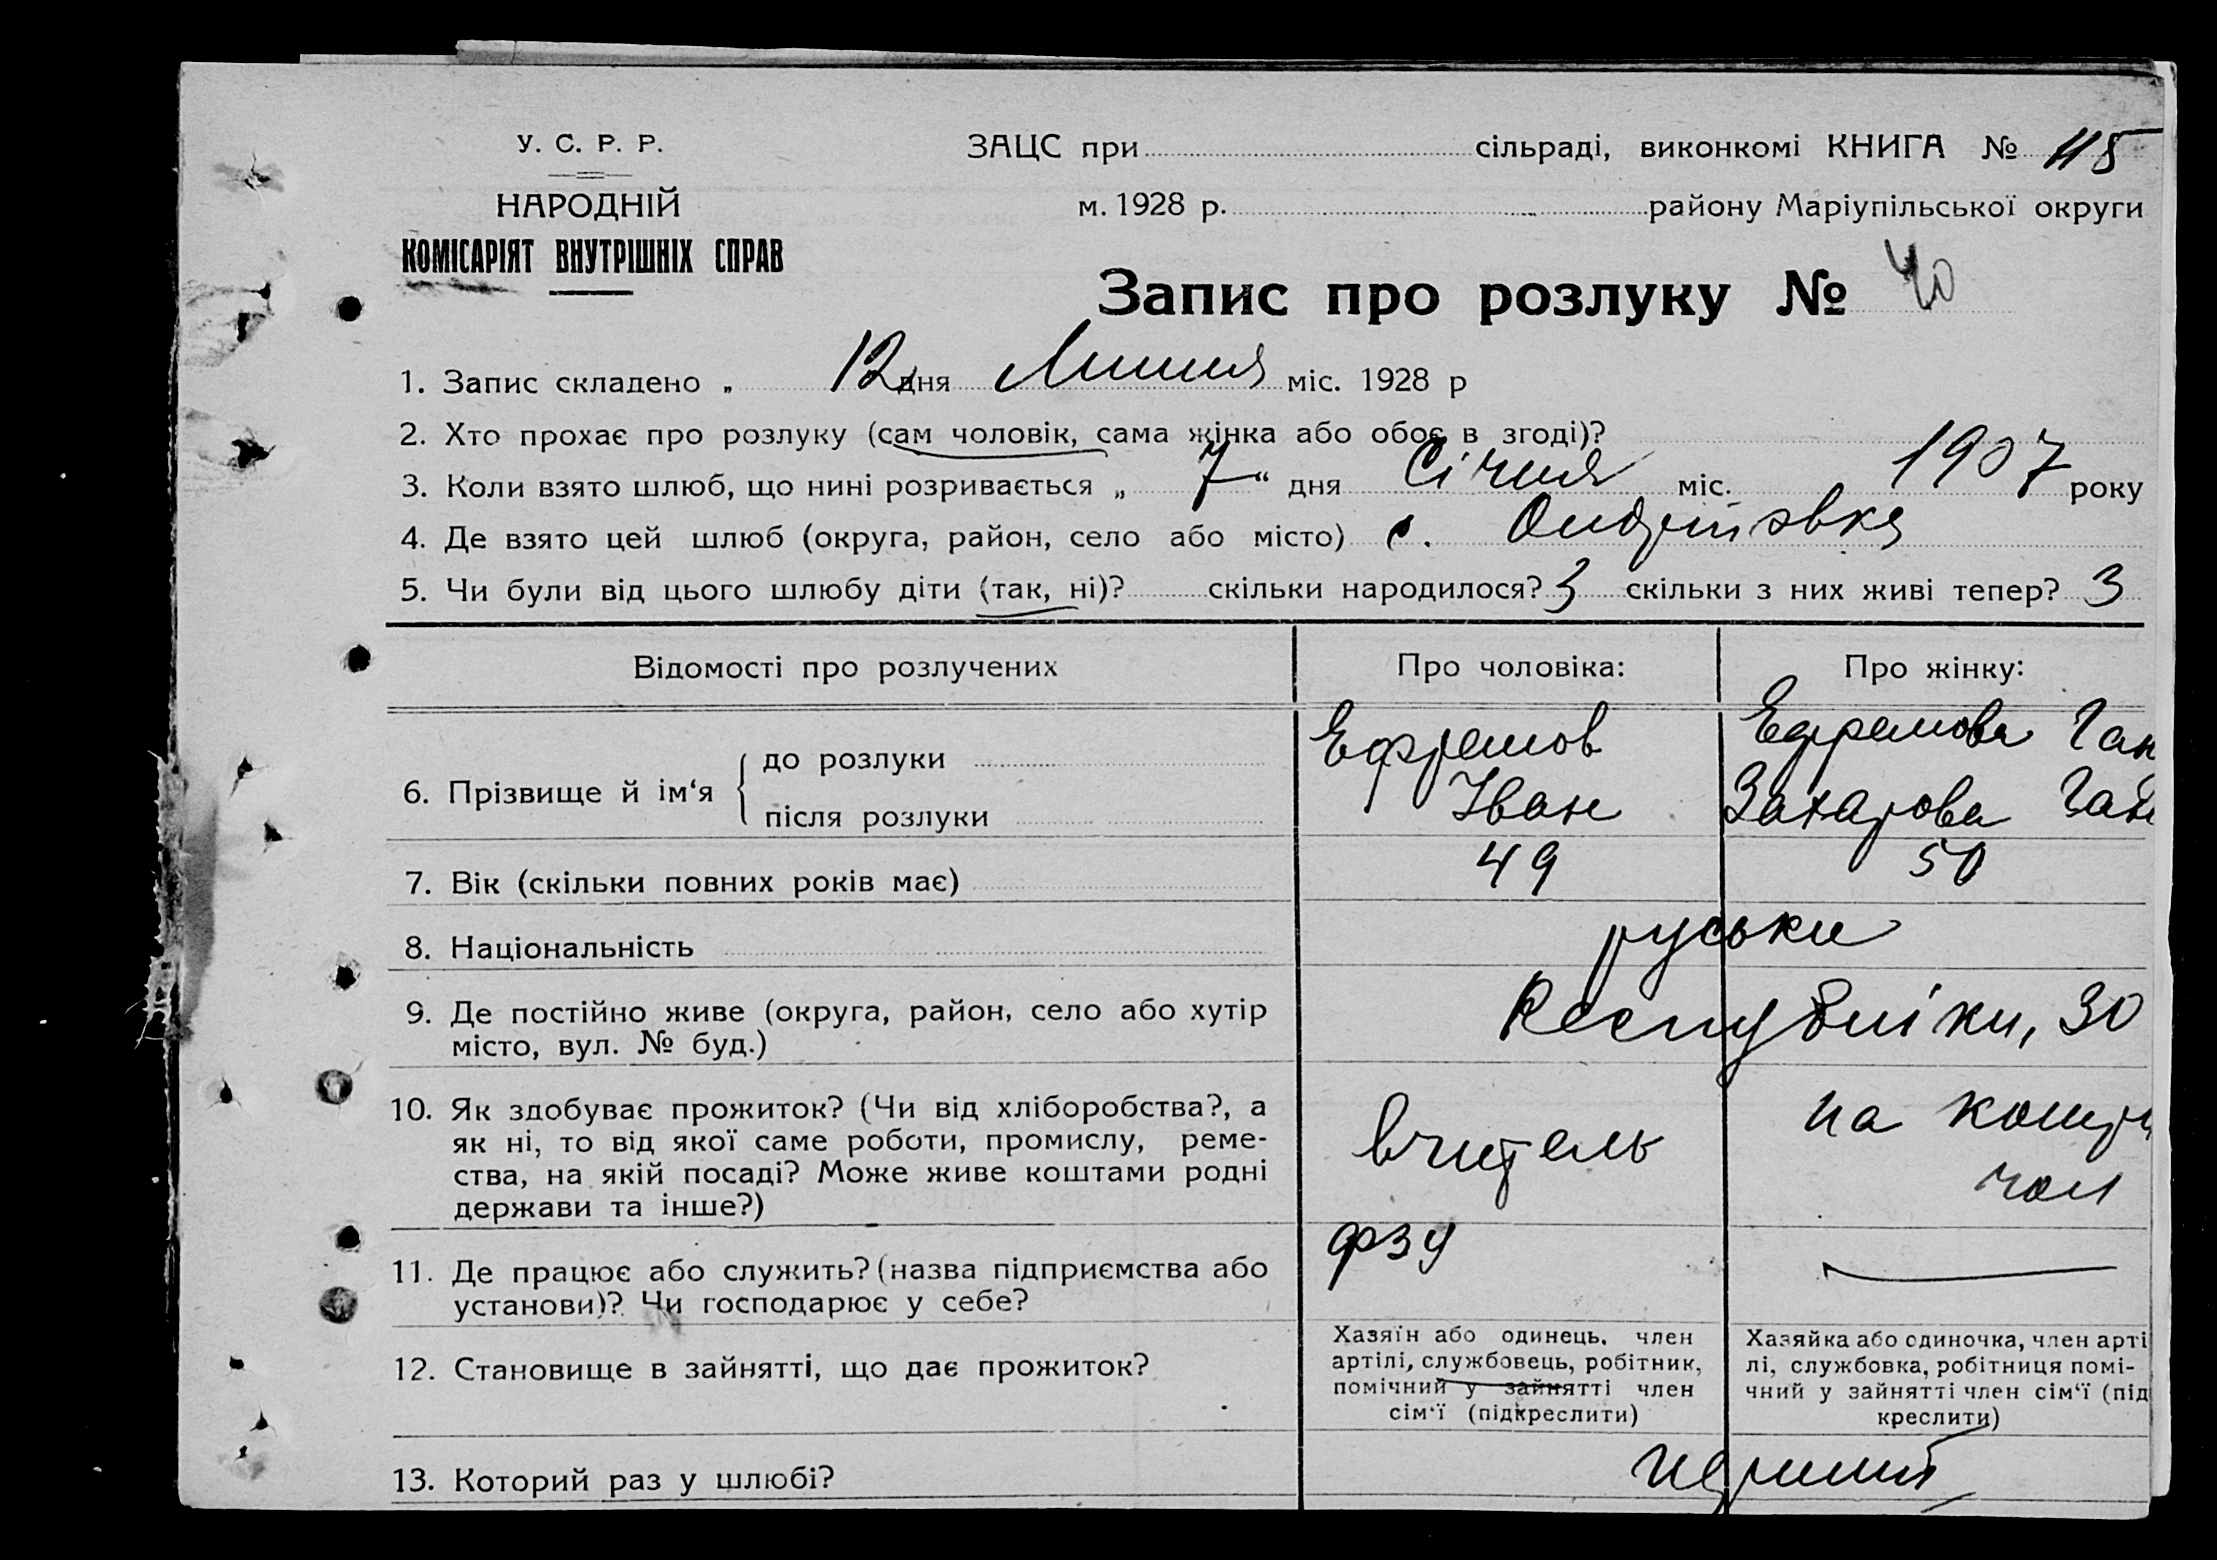 У. С. Р. Р.
НАРОДНІЙ
КОМІСАРІЯТ ВНУТРІШНІХ СПРАВ
ЗАЦС при сільраді, виконкомі КНИГА № 115
м. 1928 р. району Маріупільської округи
Запис про розлуку № 40
1. Запис складено „ 12 дня Липня міс. 1928 р
2. Хто прохає про розлуку (сам чоловік, сама жінка або обоє в згоді)?
3. Коли взято шлюб, що нині розривається „ 7 “ дня Січня міс. 1907 року
4. Де взято цей шлюб (округа, район, село або місто) с.
5. Чи були від цього шлюбу діти (так, ні)? скільки народилося? 3 скільки з них живі тепер? 3
Відомості про розлучених Про чоловіка: Про жінку:
6. Прізвище й ім‘я
до розлуки Ефремов Ефремова Ган
після розлуки Іван Захарова Ган
7. Вік (скільки повних років має) 49 50
8. Національність руськи
9. Де постійно живе (округа, район, село або хутір
місто, вул. № буд.) Республіки, 30
10. Як здобуває прожиток? (Чи від хліборобства?, а
як ні, то від якої саме роботи, промислу, реме-
ства, на якій посаді? Може живе коштами родні
держави та інше?)
вчитель
на
чол
11. Де працює або служить? (назва підприємства або
установи)? Чи господарює у себе?
ФЗУ
12. Становище в зайнятті, що дає прожиток?
Хазяїн або одинець, член
артілі, службовець, робітник,
помічний у зайнятті член
сім‘ї (підкреслити)
Хазяйка або одиночка, член арті
лі, службовка, робітниця помі-
чний у зайнятті член сім‘ї (під
креслити)
13. Которий раз у шлюбі?